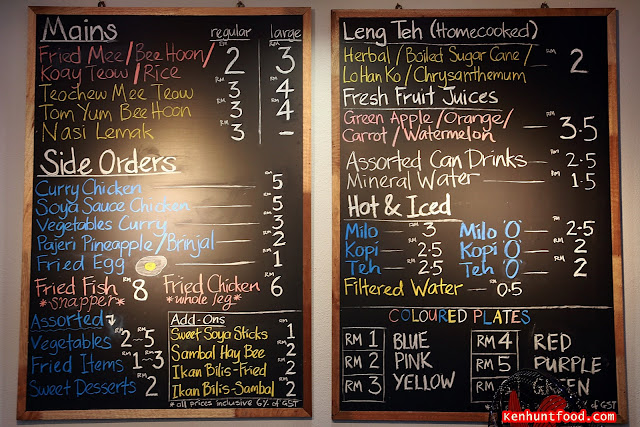 Mains regular large
Fried Mee/Bee Hoon/ RM 2 RM 3
Koay Teow/Rice
Teochew Mee Teow RM 3 RM 4
Tom Yum Bee Hoon RM 3 RM 4
Nasi Lemak RM 3 -
Side Orders
Curry Chicken RM 5
Soya Sauce Chicken RM 5
Vegetables Curry RM 3
Pajeri Pineapple/Brinjal RM 2
Fried Egg RM 1
Fried Fish RM 8 Fried Chicken RM 6
*snapper* *whole leg*
Assorted
Vegetables RM 2~RM 5
Fried Items RM 1~RM 3
Sweet Desserts RM 2
Add-Ons
Sweet Soya Sticks RM 1
Sambal Hay Bee RM 2
Ikan Bilis-Fried RM 2
Ikan Bilis-Sambal RM 2
*all prices inclusive 6% of GST
Leng Teh (Homecooked)
Herbal/Boiled Sugar Cane/ RM 2
Lo Han Ko/Chrysanthemum
Fresh Fruit Juices
Green Apple/Orange/ RM 3.5
Carrot/Watermelon
Assorted Can Drinks RM 2.5
Mineral Water RM 1.5
Hot & Iced
Milo RM 3 Milo 'O' RM 2.5
Kopi RM 2.5 Kopi 'O' RM 2
Teh RM 2.5 Teh 'O' RM 2
Filtered Water RM 0.5
COLOURED PLATES
RM 1 BLUE RM 4 RED
RM 2 PINK RM 5 PURPLE
RM 3 YELLOW GREEN
of GST
kenhuntfood.com